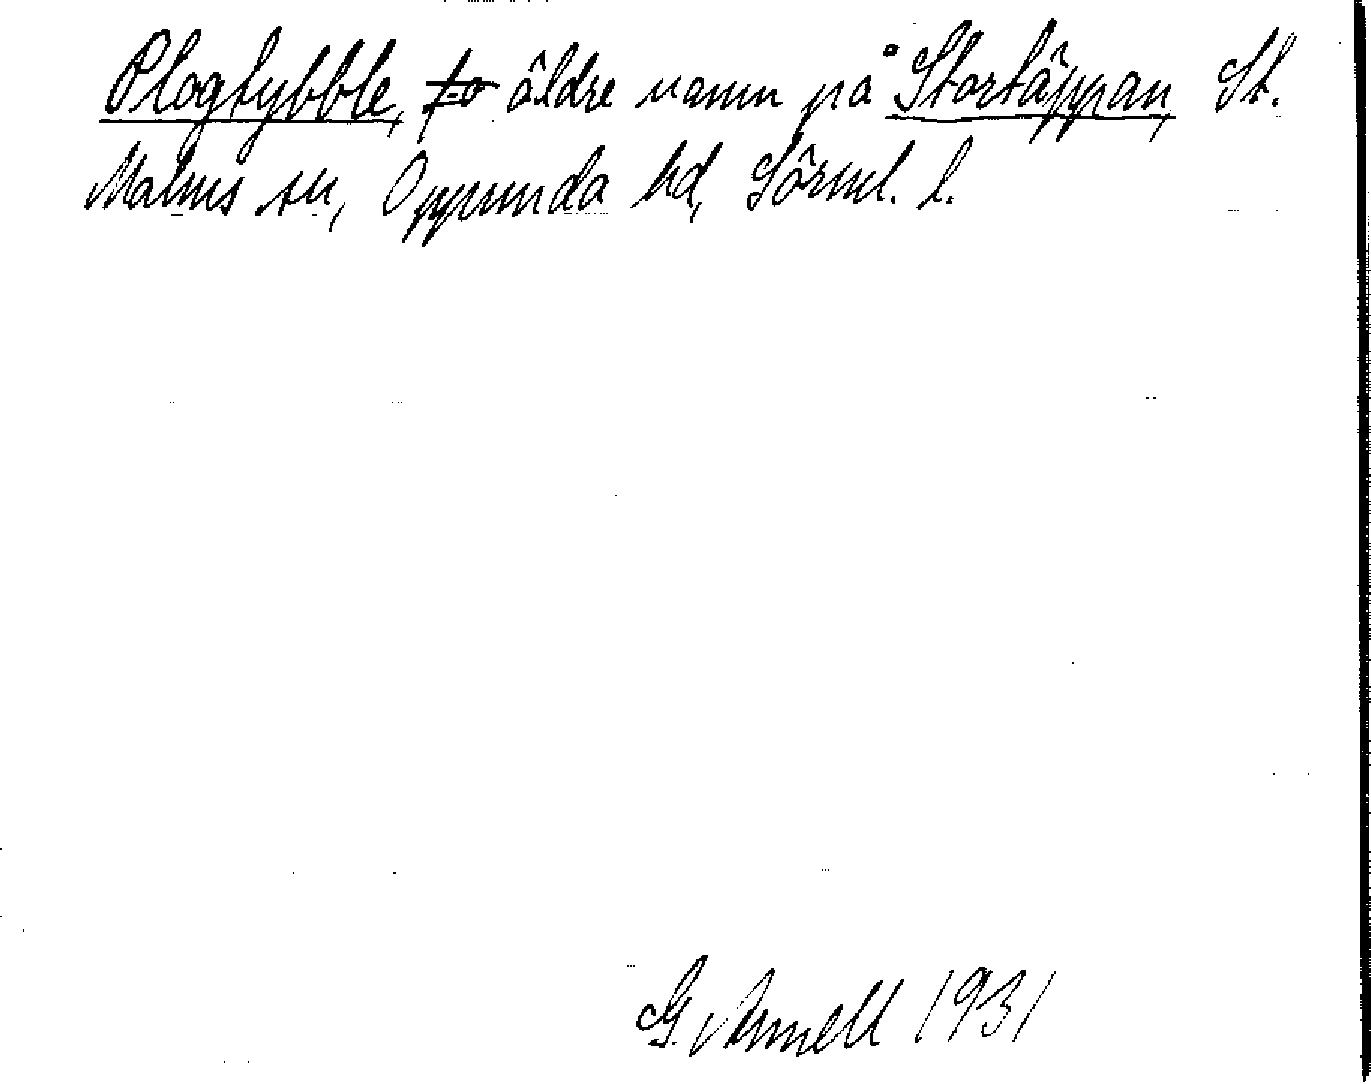 Plogtybble, to äldre namn på Stortäppan, St.
Malms sn, Oppunda hd, Sörml. l.
G. Arnell 1931